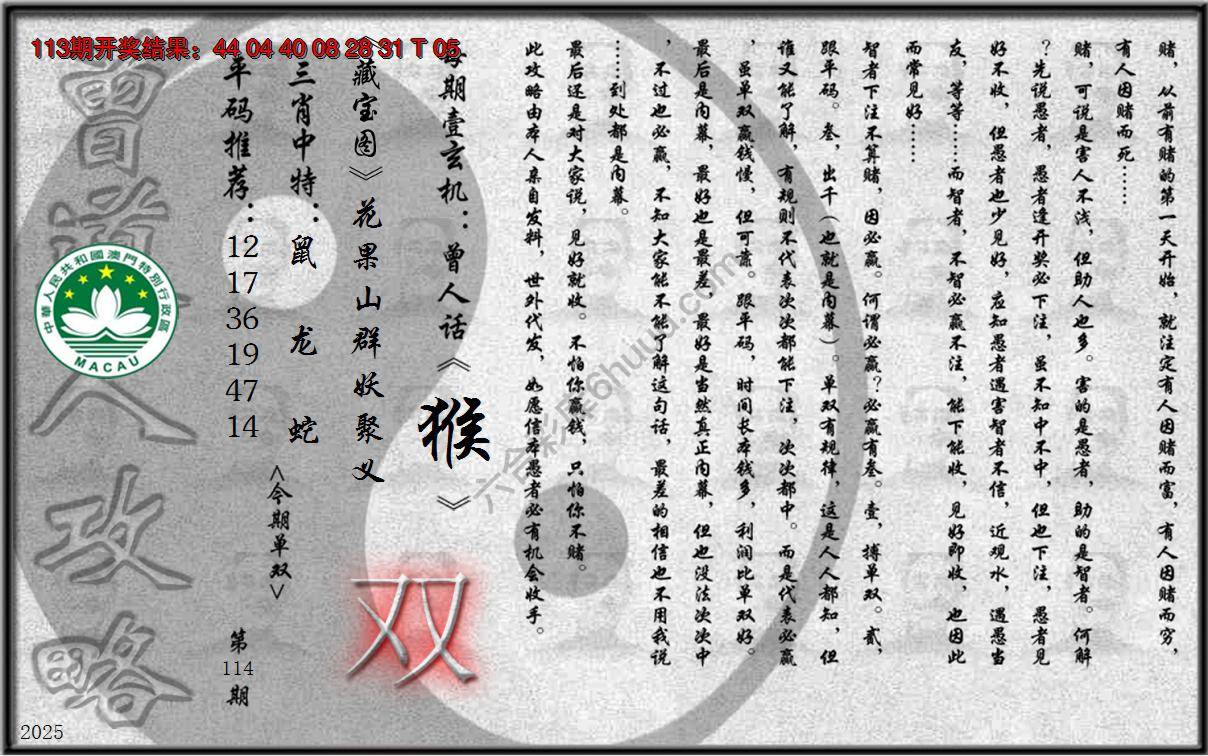 113期开奖结果：44 04 40 08 28 31 T 05
赌，从前有赌的第一天开始，就注定有人因赌而富，有人因赌而穷，
有人因赌而死……
赌，可说是害人不浅，但助人也多。害的是愚者，助的是智者。何解
？先说愚者，愚者逢开奖必下注，虽不知中不中，但也下注，愚者见
好不收，但愚者也少见好，应知愚者遇害智者不信，近观水，遇愚当
友，等等……而智者，不智必赢不注，能下能收，见好即收，也因此
而常见好……
智者下注不算赌，因必赢。何谓必赢？必赢有叁。壹，搏单双。贰，
跟平码。叁，出千（也就是内幕）。单双有规律，这是人人都知，但
谁又能了解，有规则不代表次次都能下注，次次都中。而是代表必赢
，虽单双赢钱慢，但可靠。跟平码，时间长本钱多，利润比单双好。
最后是内幕，最好也是最差，最好是当然真正内幕，但也没法次次中
，不过也必赢，不知大家能不能了解这句话，最差的相信也不用我说
……到处都是内幕。
最后还是对大家说，见好就收。不怕你赢钱，只怕你不赌。
此攻略由本人亲自发料，世外代发，如愿信本愚者必有机会收手。
每期壹玄机：曾人话《猴》
《藏宝图》花果山群妖聚义
双
三肖中特：鼠 龙 蛇
<今期单双>
平码推荐：
12
17
36
19
47
14
第
114
期
曾道人攻略
中華人民共和國澳門特別行政區
MACAU
六合彩库6huuu.com
2025